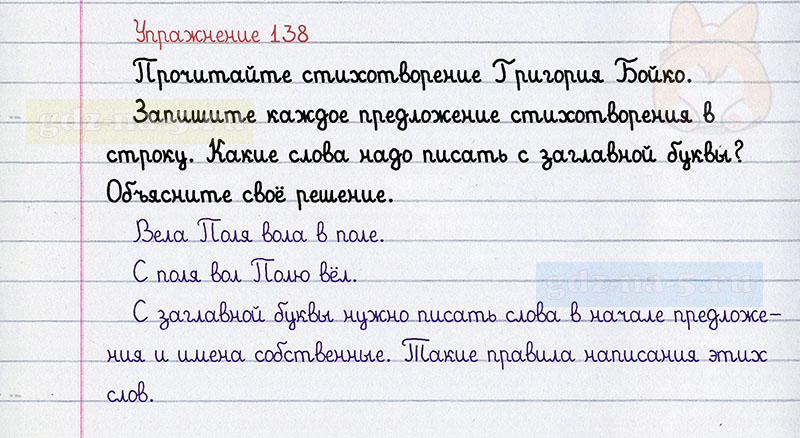 Упражнение 138
Прочитайте стихотворение Григория Бойко.
Запишите каждое предложение стихотворения в
строку. Какие слова надо писать с заглавной буквы?
Объясните своё решение.
Вела Поля вола в поле.
С поля вол Полю вёл.
С заглавной буквы нужно писать слова в начале предложе-
ния и имена собственные. Такие правила написания этих
слов.
gdz-na-5.ru
gdz-na-5.ru